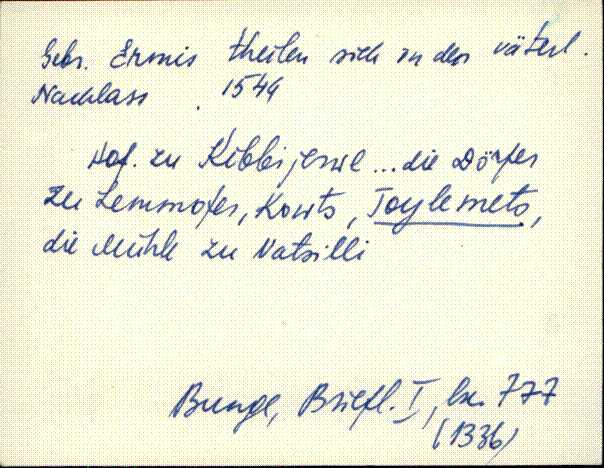 Gebr. Ermis theilen sich in den väterl.
Nachlass . 1549
Hof. zu Kibbijerwe ... die Dörfer
zu Lemmofer, Kowts, Toylemets,
die Mühle zu Natsilli
Bunge, Briefl. I, 777
(1336)